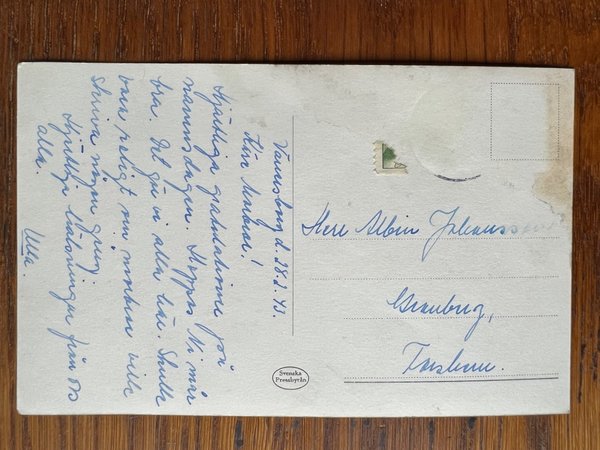 Vänersborg d. 28.2.43.
Käre Morbror!
Hjärtliga gratulationer på
namnsdagen. Hoppas Ni mår
bra. Det gör vi alla här. Skulle
vara roligt om morbror ville
skriva någon gång.
Hjärtliga hälsningar från oss
alla.
Ulla.
Herr Albin Johansson
Torskum.
Svenska
Pressbyrån